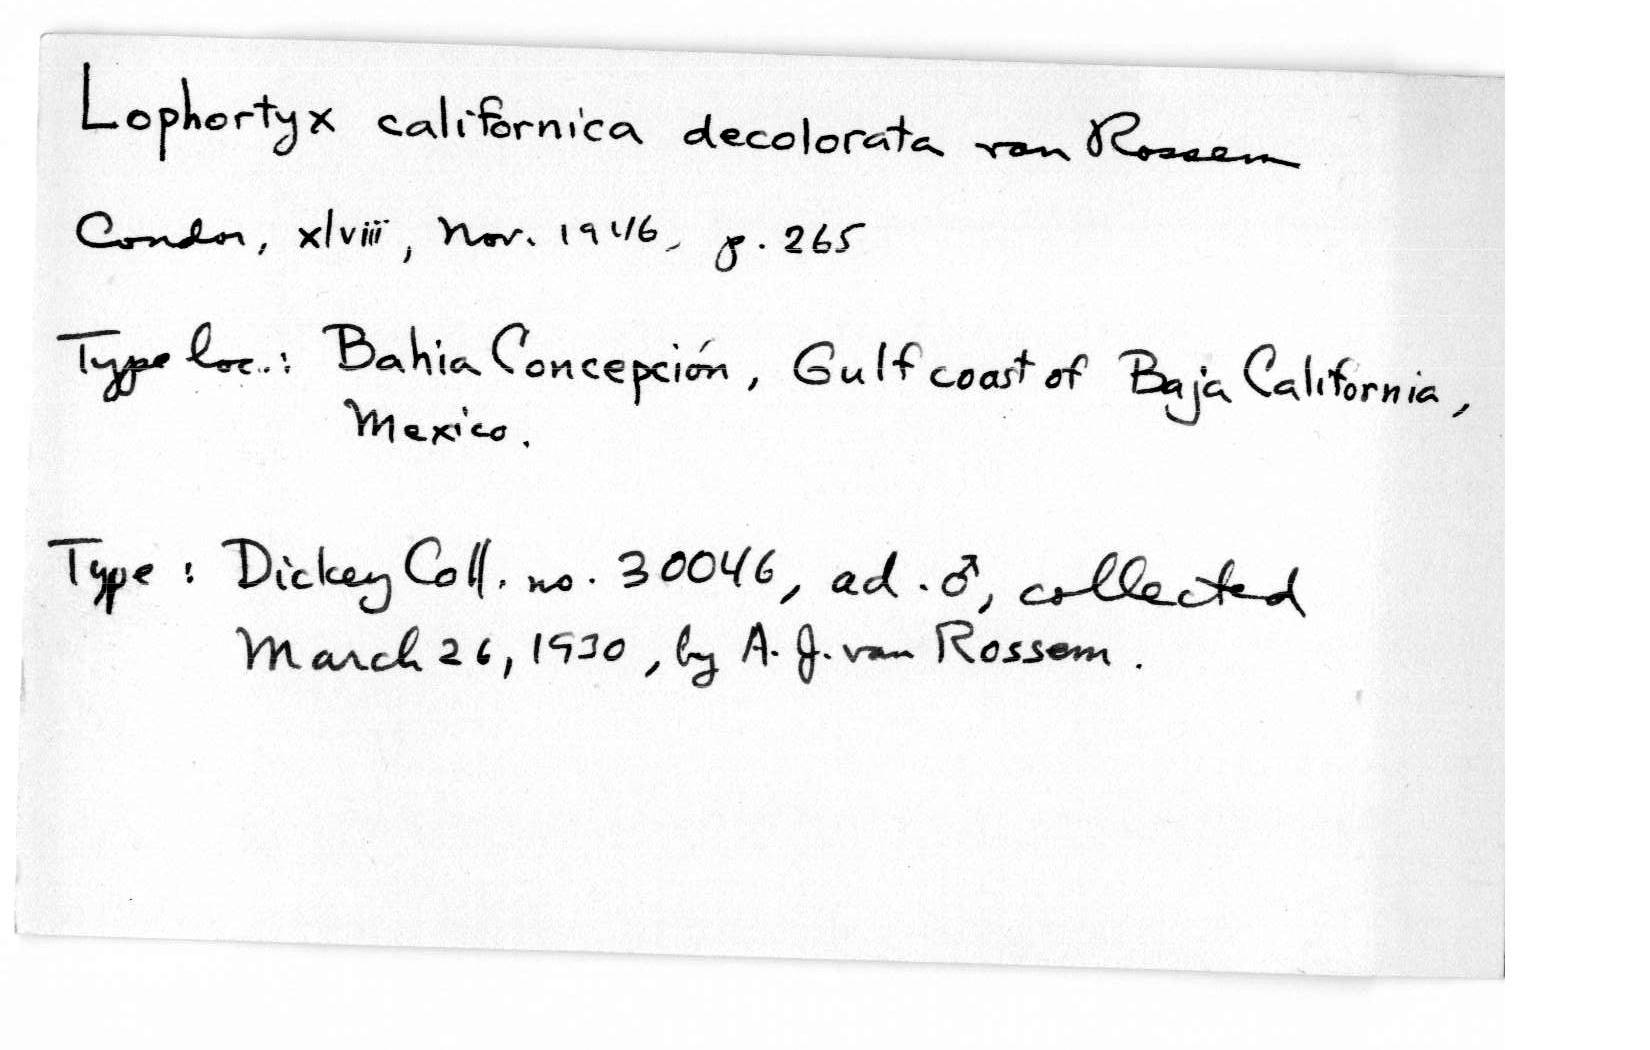 Lophortyx californica decolorata van Rossem
Condor, xlviii, Nov. 1946, p. 265
Type loc.: Bahia Concepción, Gulf coast of Baja California,
Mexico.
Type: Dickey Coll. no. 30046, ad. ♂, collected
March 26, 1930, by A. J. van Rossem.